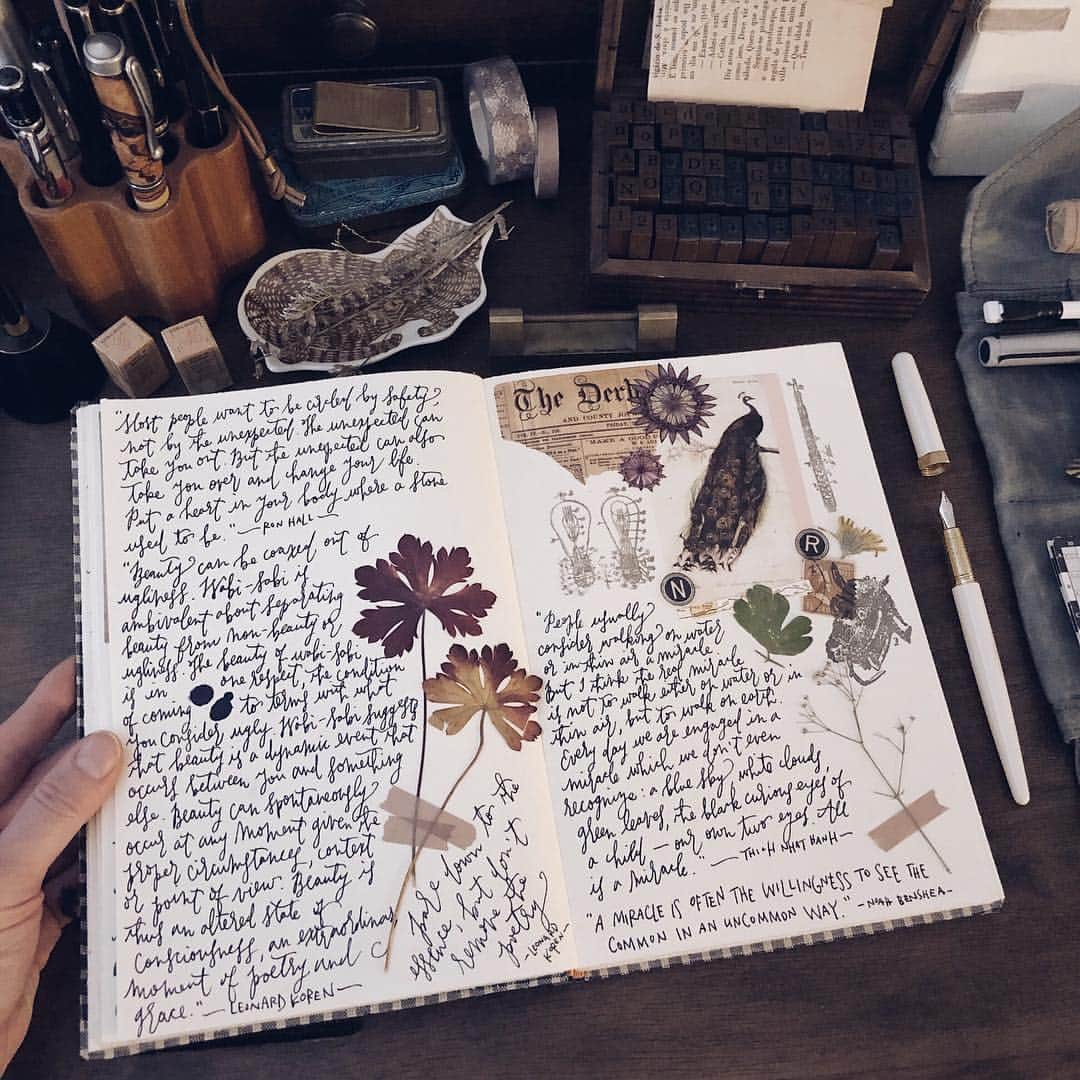 "Most people want to be circled by safety
not by the unexpected. The unexpected can
take you out. But the unexpected can also
take you over and change your life.
Put a heart in your body where a stone
used to be." — RON HALL —
"Beauty can be coaxed out of
ugliness. Wabi-sabi is
ambivalent about separating
beauty from non-beauty or
ugliness. The beauty of wabi-sabi
is in one respect, the condition
of coming to terms with what
you consider ugly. Wabi-sabi suggests
that beauty is a dynamic event that
occurs between you and something
else. Beauty can spontaneously
occur at any moment given the
proper circumstances, context
or point of view. Beauty is
thus an altered state of
consciousness, an extraordinary
moment of poetry and
grace." — LEONARD KOREN —
Pare down to the
essence, but don't
remove the
poetry
- LEONARD
KOREN -
The Derb
AND COUNTY JO
MAKE A GOOD
N
R
"People usually
consider walking on water
or in thin air a miracle.
But I think the real miracle
is not to walk either on water or in
thin air, but to walk on earth.
Every day we are engaged in a
miracle which we don't even
recognize: a blue sky, white clouds,
green leaves, the black curious eyes of
a child — our own two eyes. All
is a miracle." — THICH NHAT HANH —
"A MIRACLE IS OFTEN THE WILLINGNESS TO SEE THE
COMMON IN AN UNCOMMON WAY." - NOAH BENSHEA -